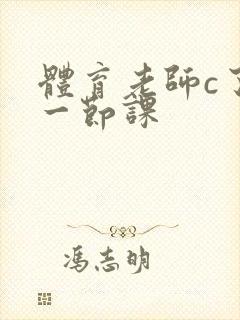 體育老師c了
一節課
馮志明